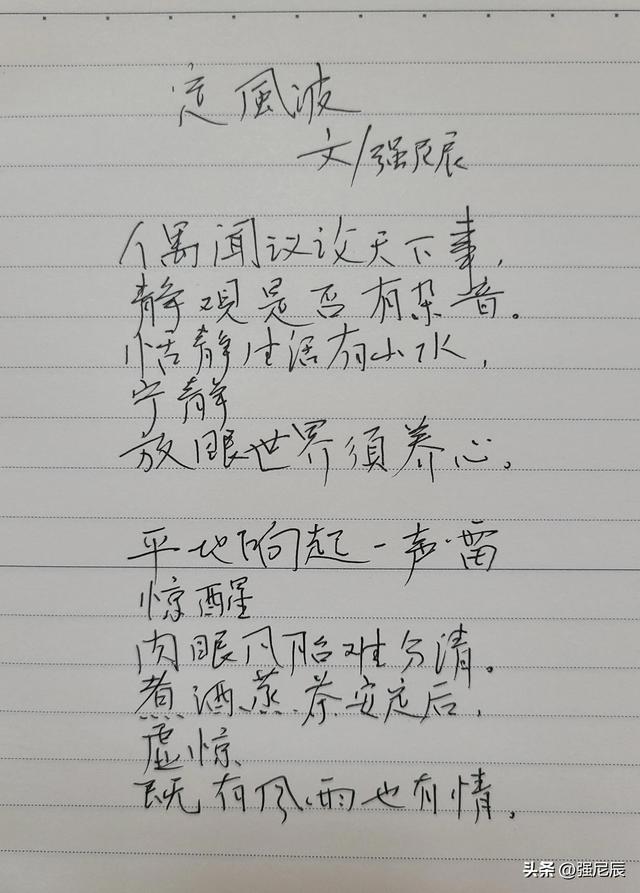 定風波
文/强尼辰
偶闻议论天下事，
静观是否有杂音。
恬静生活有山水，
宁静
放眼世界须养心。
平地响起一声雷
惊醒
肉眼凡胎难分清。
煮酒蒸茶安定后，
虚惊、
既有风雨也有情。
头条 @强尼辰